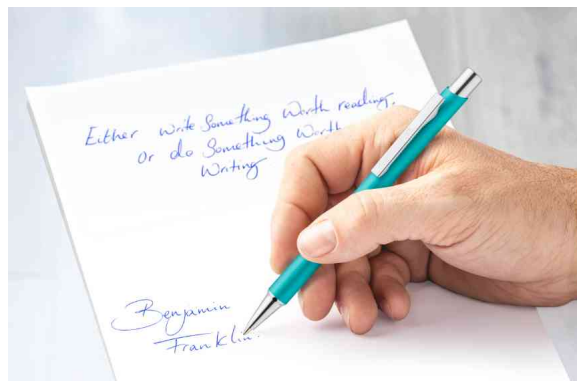 Either write Something Worth reading,
Or do Something Worth
Writing
Benjamin
Franklin.